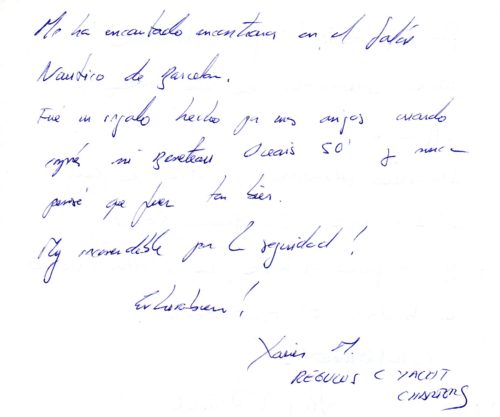 Me ha encantado encontraros en el Salón
Náutico de Barcelona.
Fué un regalo hecho por unos amigos cuando
compré mi Beneteau Oceanis 50' y nunca
pensé que fuera tan bien.
Muy recomendable por la seguridad!
Enhorabuena!
Xavier M.
REGULUS C YACHT
CHARTERS